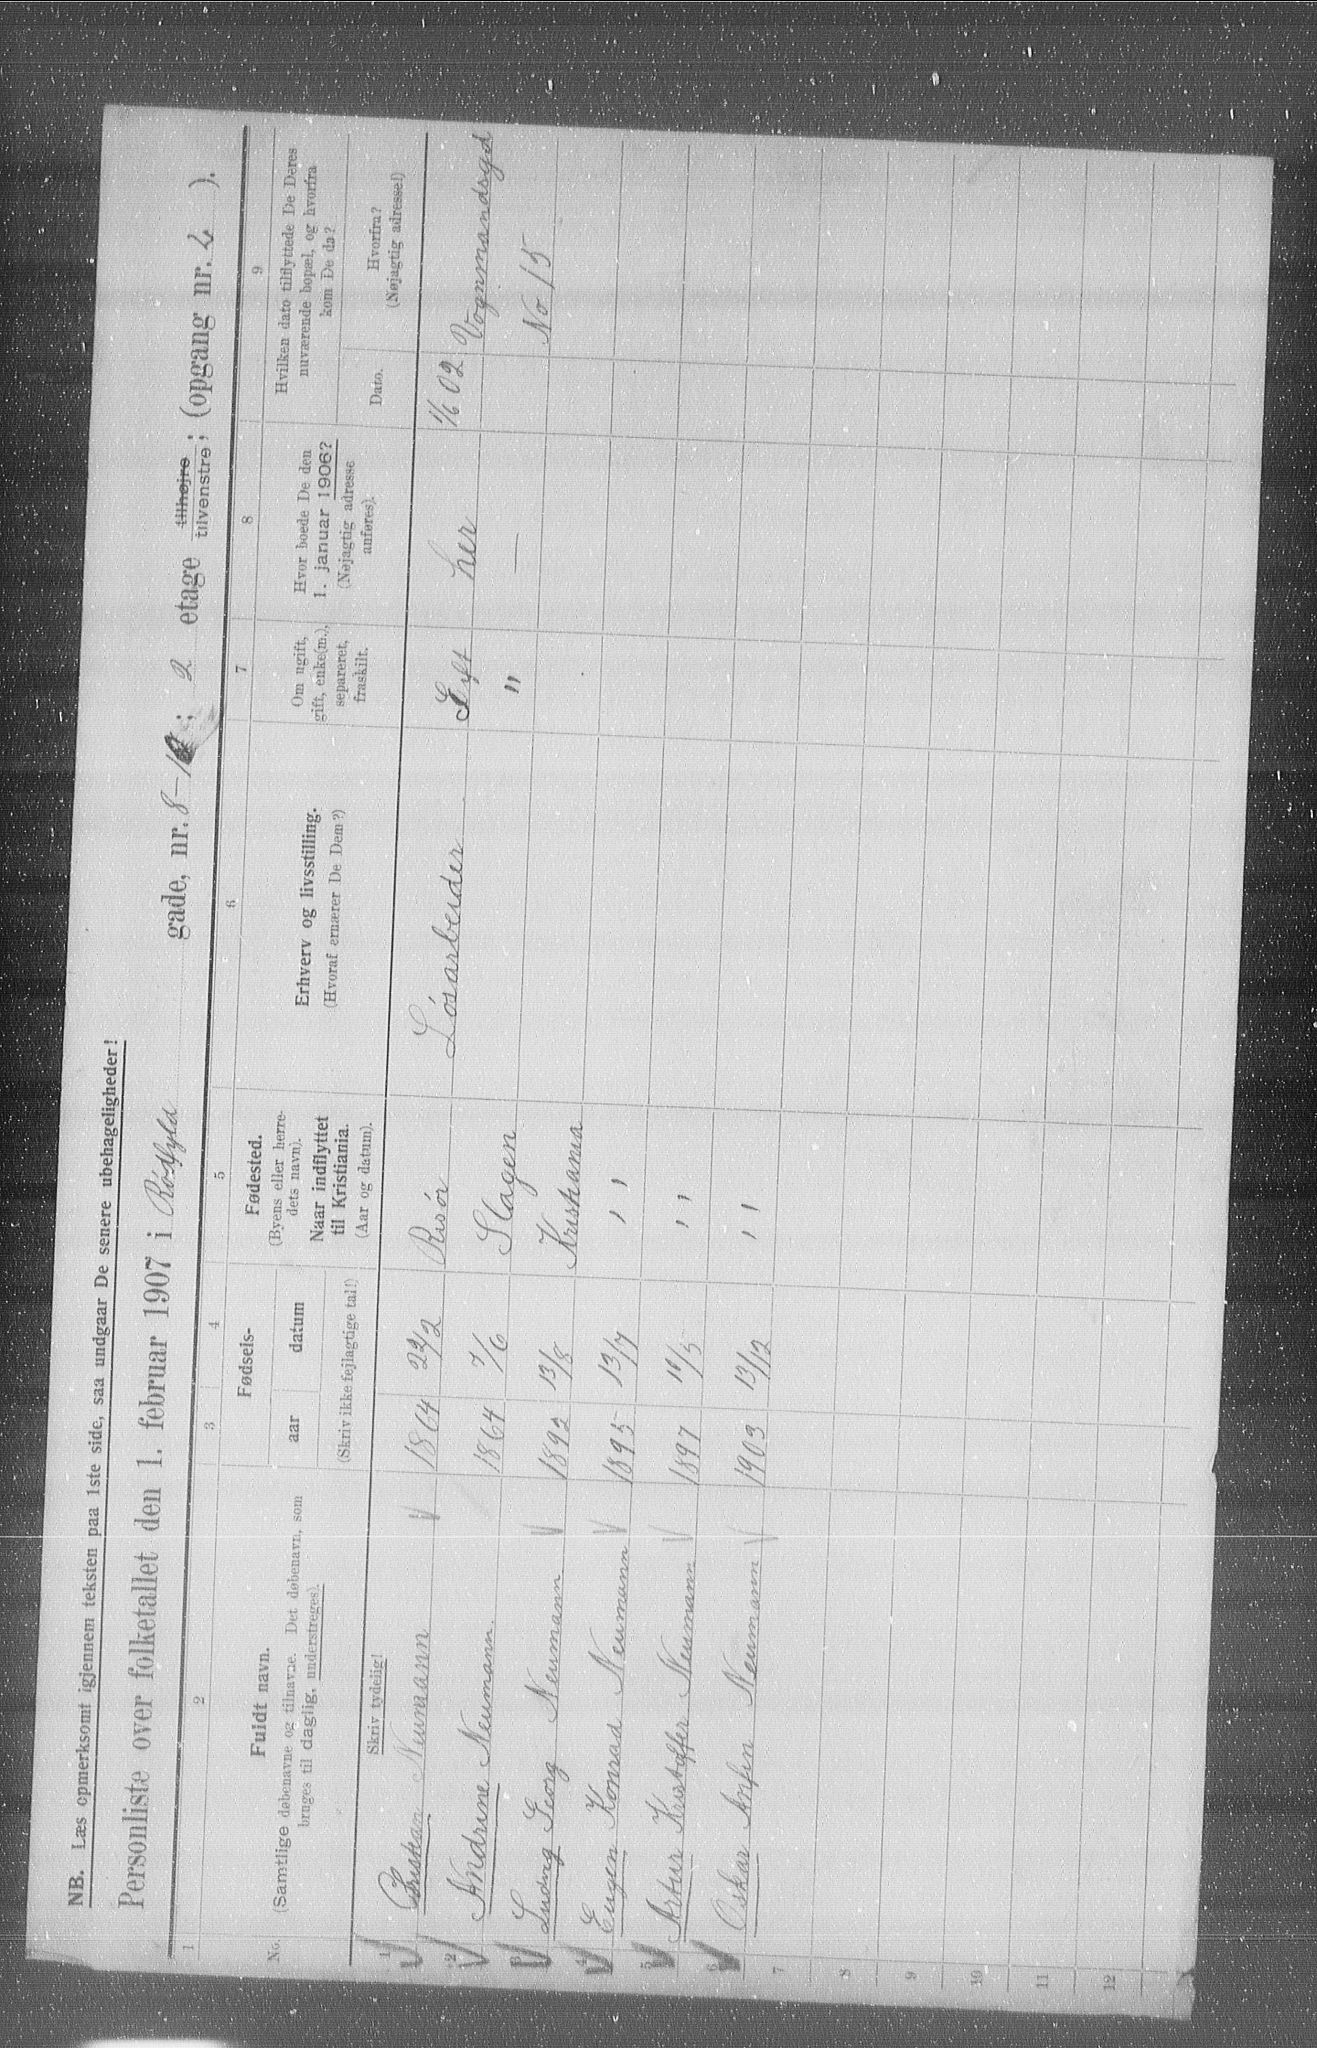 NB. Læs opmerksomt igjennem teksten paa 1ste side, saa undgaar De senere ubehageligheder!
Personliste over folketallet den 1. februar 1907 i Rödfyld gade, nr. 8-10; 2 etage tilhøjre tilvenstre; (opgang nr. 2 ).
1 2 3 4 5 6 7 8 9
No.
Fuldt navn.
(Samtlige døbenavne og tilnavne. Det døbenavn, som
bruges til daglig, understreges).
Skriv tydelig!
Fødsels-
aar datum
(Skriv ikke fejlagtige tal!)
Fødested.
(Byens eller herre-
dets navn).
Naar indflyttet
til Kristiania.
(Aar og datum).
Erhverv og livsstilling.
(Hvoraf ernærer De Dem?)
Om ugift,
gift, enke(m.),
separeret,
fraskilt.
Hvor boede De den
1. januar 1906?
(Nøjagtig adresse
anføres).
Hvilken dato tilflyttede De Deres
nuværende bopæl, og hvorfra
kom De da?
Dato.
Hvorfra?
(Nøjagtig adresse!)
1 Kristian Neumann 1864 22/2 Risör Lösarbeider Gift her 1/6 02 Vognmandsgd
2 Andrine Neumann. 1864 7/6 Slagen " — No 15
3 Ludvig Georg Neumann 1892 13/8 Kristiania
4 Eugen Konrad Neumann 1895 13/7 ' '
5 Artur Kristoffer Neumann 1897 /5 ' '
6 Oskar Arfin Neumann 1903 13/12 ' '
7
8
9
10
11
12